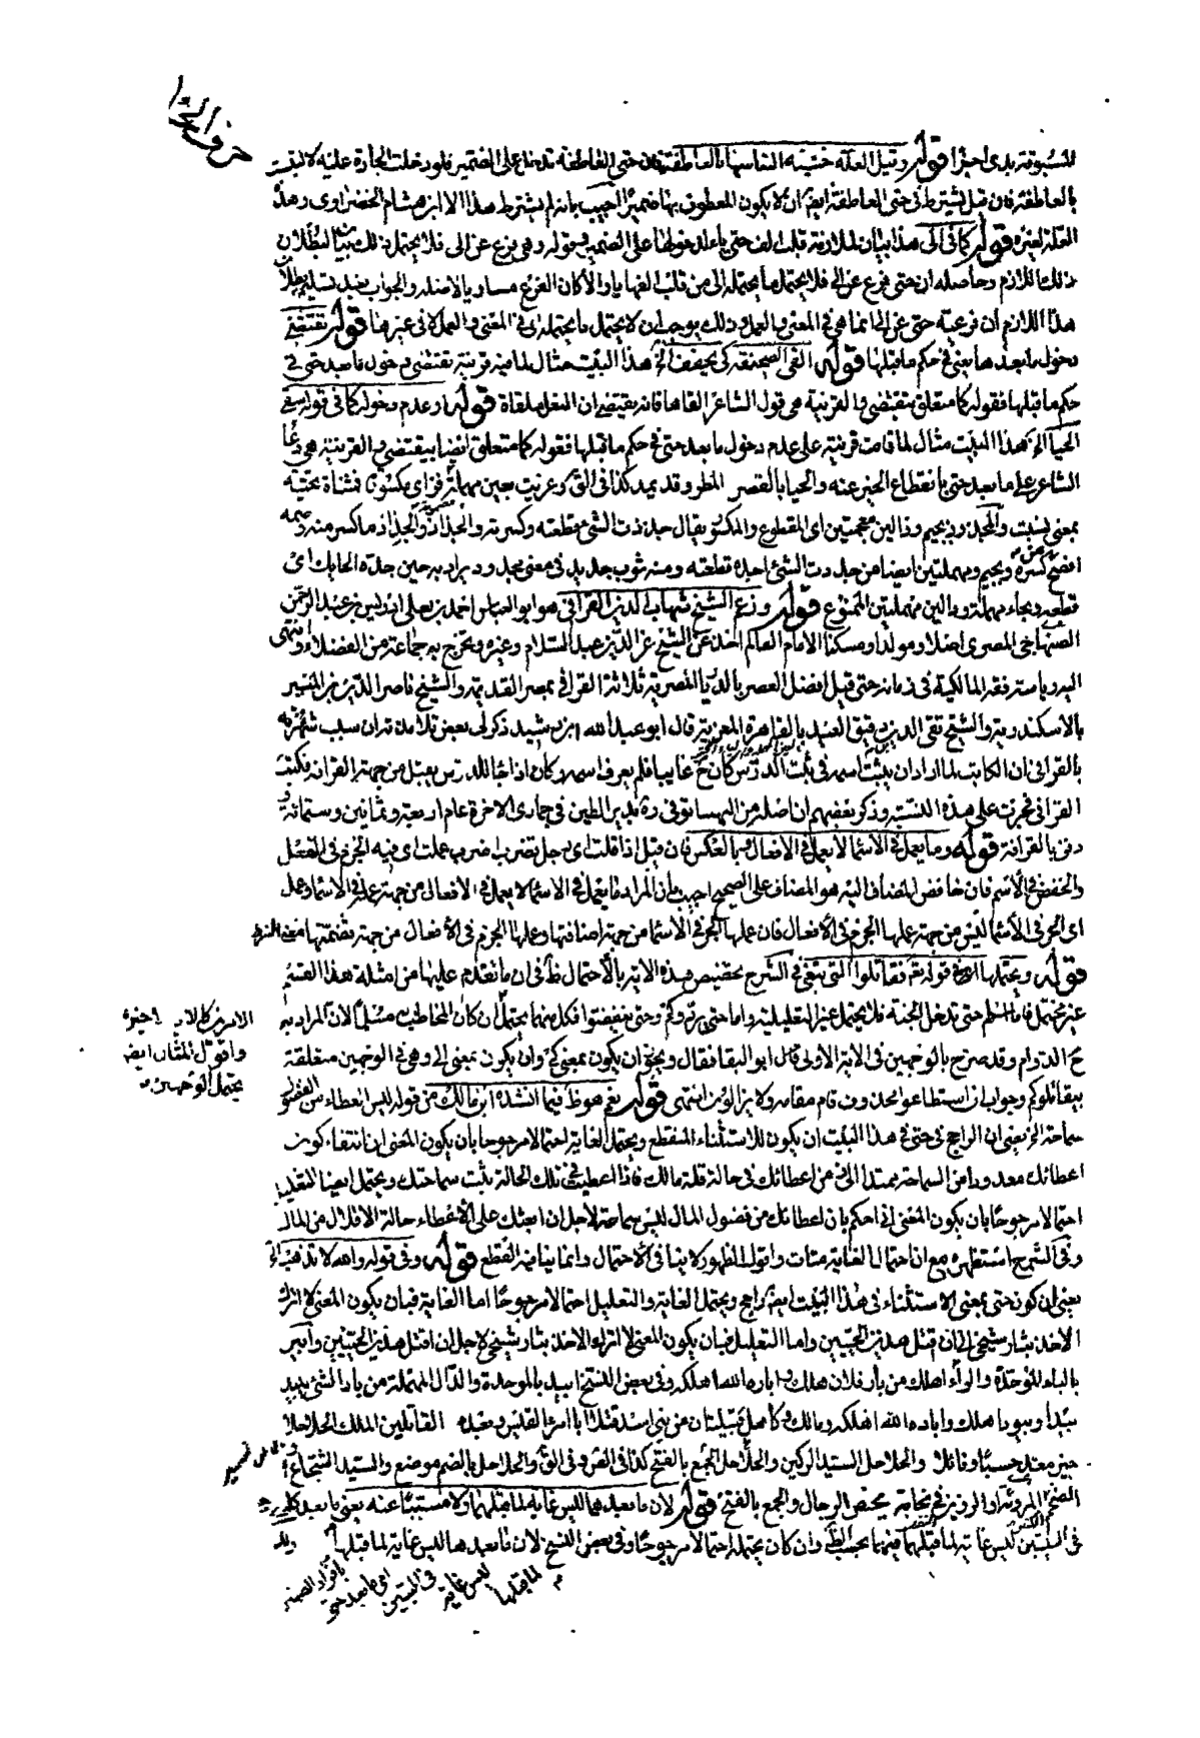 حرف الحاء
المسبوقة بذي اجزا قوله وقيل العلة خشية التباسها بالعاطفة فان حتى العاطفة تدخل على الضمير فلو دخلت الجارة عليه لالتبست
بالعاطفة فان قيل يشترط في حتى العاطفة ايضا ان لا يكون المعطوف بها ضميرا اجيب بانه لم يشترط هذا الا ابن هشام الخضراوي وهذه
العلة لغيره قوله كما في الى هذا بيان لملازمة قلب الف حتى ياء لدخولها على الضمير وقوله وهي فرع عن الى فلا يحتمل ذلك بيان لبطلان
ذلك اللازم وحاصله ان حتى فرع عن الى فلا يحتمل ما يحتمله الى من قلب الفها ياء والا كان الفرع مساويا لاصله والجواب بعد تسليم بطلان
هذا اللازم ان فرعية حتى عن الى انما هي في المعنى والعمل وذلك يوجب ان لا يحتمل ما يحتمله الى في المعنى والعمل لا في غيرهما قوله تقتضي
دخول ما بعدها يعني في حكم ما قبلها قوله القى الصحيفة كي يخفف الخ هذا البيت مثال لما فيه قرينة تقتضي دخول ما بعد حتى في
حكم ما قبلها فقوله كما متعلق بتقتضي والقرينة هي قول الشاعر القاها فانه يقتضي ان النعل ملقاة قوله او عدم دخوله كما في قوله سقى
الحيا الخ هذا البيت مثال لما قامت قرينة على عدم دخول ما بعد حتى في حكم ما قبلها فقوله كما متعلق ايضا بيقتضي والقرينة هي دعا
الشاعر على ما بعد حتى بانقطاع الخير عنه والحيا بالقصر المطر وقد يمد كذا في ق وعزيت بعين مهملة فزاي مكسورة فمثناة تحتية
بمعنى نسبت والمجذوذ بجيم وذالين معجمتين اي المقطوع والمكسور يقال جذذت الشئ قطعته وكسرته والجذاذ والجذاذ ما كسر منه وضمه
افصح من كسره وبجيم ومهملتين ايضا من جددت الشئ اجده قطعته ومنه ثوب جديد في معنى مجدود يراد به حين جده الحايك اي
قطعه وبحاء مهملة ودالين مهملتين الممنوع قوله وزعم الشيخ شهاب الدين القرافي هو ابو العباس احمد بن ابي العلى ادريس بن عبد الرحمن
الصنهاجي المصري اصلا ومولدا ومسكنا الامام العالم اخذ عن الشيخ عز الدين عبد السلام وغيره وتخرج به جماعة من الفضلاء وانتهى
اليه رياسة فقه المالكية في زمانه حتى قيل افضل العصر بالديار المصرية ثلاثة القرافي بمصر القديمة والشيخ ناصر الدين بن المنير
بالاسكندرية والشيخ تقي الدين بن دقيق العيد بالقاهرة المعزية قال ابو عبد الله ابن رشيد ذكر لي بعض تلامذته ان سبب شهرته
بالقرافي ان الكاتب لما اراد ان يثبت اسمه في ثبت الدرس كان ح غايبا فلم يعرف اسمه وكان اذا جا للدرس يقبل من جهة القرافة فكتب
القرافي فجرت عليه هذه النسبة وذكر بعضهم ان اصله من البهنسا توفي ره بدير الطين في جمادى الاخرة عام اربعة وثمانين وستمائة و
دفن بالقرافة قوله وما يعمل في الاسما لا يعمل في الافعال وبالعكس فان قيل اذا قلت اي رجل تضرب اضرب عملت اي فيه الجزم في الفعل
والخفض في الاسم فان خافض المضاف اليه هو المضاف على الصحيح اجيب بأن المراد ما يعمل في الاسما لا يعمل في الافعال من جهة عمله في الاسما وعمل
اي الجر في الاسما ليس من جهة عملها الجزم في الافعال فان عملها الجر في الاسما من جهة اضافتها وعملها الجزم في الافعال من جهة تضمنها معنى الشرط
قوله ويحتملها قوله تعالى فقاتلوا التي تبغي في الشرح تخصيص هذه الاية بالاحتمال ظ في ان ما تقدم عليها من امثلة هذا القسم
غير محتمل فاما اسلم حتى تدخل الجنة فلا يحتمل غير التعليلية واما حتى يردوكم وحتى ينفضوا فكل منهما يحتمل ان كان المخاطب مسلما لان المراد به
ح الدوام وقد صرح بالوجهين في الاية الاولى قال ابو البقا فقال ويجوز ان يكون بمعنى كي وان يكون بمعنى الى وهي في الوجهين متعلقة
بيقاتلونكم وجواب ان استطاعوا محذوف قام مقامه ولا يزالون انتهى قوله نعم هو ظ فيما انشده ابن مالك من قوله ليس العطاء من الفضول
سماحة الخ يعني ان الراجح في حتى في هذا البيت ان يكون للاستثناء المنقطع ويحتمل الغاية احتمالا مرجوحا بان يكون المعنى ان انتفاء كون
اعطائك معدودا من السماحة ممتد الى زمن اعطائك في حالة قلة مالك فاذا اعطيت في تلك الحالة ثبت سماحتك ويحتمل ايضا التعليل
احتمالا مرجوحا بان يكون المعنى اني احكم بان اعطائك من فضول المال ليس سماحة لاجل ان ابعثك على الاعطاء حالة الاقلال من المال
وفي الشرح استظهره مع ان احتمال الغاية متات واقول الظهور لا ينافي الاحتمال وانما ينافيه القطع قوله وفي قوله والله لا يذهب الخ
يعني ان كون حتى بمعنى الاستثناء في هذا البيت ايضا راجح ويحتمل الغاية والتعليل احتمالا مرجوحا اما الغاية فبان يكون المعنى لا اترك
الاخذ بثار شيخي الى ان اقتل هذين الحيين واما التعليل فبان يكون المعنى لا اترك الاخذ بثار شيخي لاجل ان اقتل هذين الحيين وابير
بالباء الموحدة والراء اهلك من بار فلان هلك واباره الله اهلكه وفي بعض النسخ ابيد بالموحدة والدال المهملة من باد الشئ يبيد
بيدا وبيودا هلك واباده الله اهلكه ومالك وكاهل قبيلتان من بني اسد قتلا ابا امرئ القيس وبعده القاتلين الملك الحلاحلا
خير معد حسبا ونائلا والحلاحل السيد الركين والحلاحل الجمع بالفتح كذا في الصحاح وفي ق والحلاحل بالضم موضع والسيد الشجاع او
الضخم المروءة او الرزين في نجابة يخص الرجال والجمع بالفتح قوله لان ما بعدهما ليس غاية لما قبلهما ولا مسببا عنه يعني ما بعد كلمة
في البيتين ليس غاية لما قبلهما فيهما بحسب الظ وان كان يحتمله احتمالا مرجوحا وفي بعض النسخ لان ما بعدها ليس غاية لما قبلها
بافراد الضمير اي ما بعد حتى في البيتين ليس غاية لما قبلها
الامر فكالاية الاخيرة
واقول المثال ايضا
يحتمل الوجهين